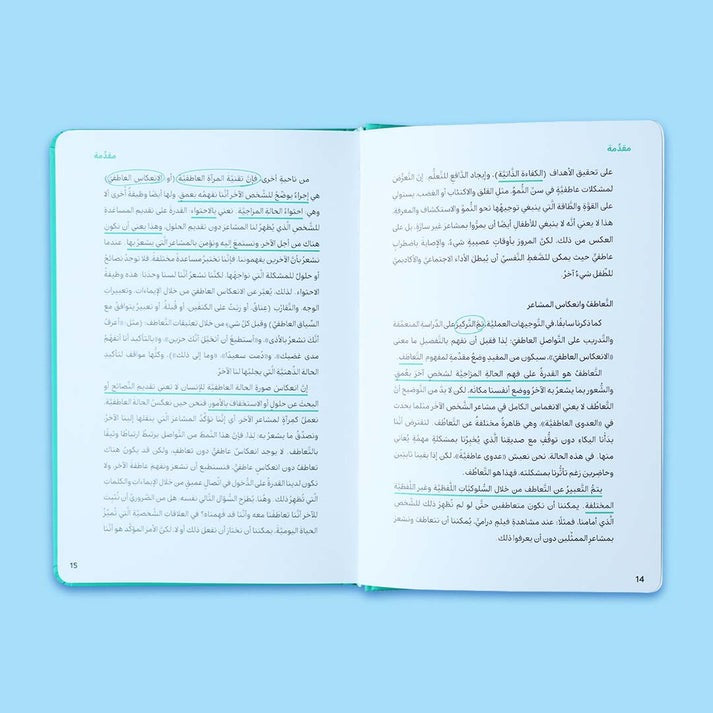 مقدّمة
على تحقيق الأهداف (الكفاءة الذّاتيّة)، وإيجاد الدّافع للتّعلّم. إنّ التعرّض
لمشكلات عاطفيّة في سنّ النّموّ، مثل القلق والاكتئاب أو الغضب، يستولي
على القوّة والطّاقة الّتي ينبغي توجيهها نحو النّموّ والاستكشاف والمعرفة.
هذا لا يعني أنّه لا ينبغي للأطفال أيضًا أن يمرّوا بمشاعر غير سارّة، بل على
العكس من ذلك. لكنّ المرور بأوقاتٍ عصيبةٍ شيءٌ، والإصابة باضطرابٍ
عاطفيٍّ حيث يمكن للضّغط النّفسيّ أن يُبطل الأداء الاجتماعيّ والأكاديميّ
للطّفل شيءٌ آخرُ.
التّعاطف وانعكاس المشاعر
كما ذكرنا سابقًا، في التّوجيهات العمليّة، يتمّ التّركيز على الدّراسة المتعمّقة
والتّدريب على التّواصل العاطفيّ؛ لذا فقبل أن نفهم بالتّفصيل ما معنى
«الانعكاس العاطفيّ»، سيكون من المفيد وضعُ مقدّمةٍ لمفهوم التّعاطف.
التّعاطفُ هو القدرةُ على فهم الحالة المزاجيّة لشخصٍ آخرَ بعُمقٍ
والشّعور بما يشعرُ به الآخرُ ووضع أنفسنا مكانَه. لكن لا بدّ من التّوضيح أنّ
التّعاطُف لا يعني الانغماس الكامل في مشاعر الشّخص الآخر مثلما يحدث
في «العدوى العاطفيّة»، وهي ظاهرةٌ مختلفةٌ عن التّعاطف. لنفترض أنّنا
بدأنا البكاء دون توقُّفٍ مع صديقنا الّذي يُخبرنا بمشكلةٍ مهمّةٍ يُعاني
منها. في هذه الحالة، نحن نعيش «عدوى عاطفيّة»، لكن إذا بقينا ثابتين
وحاضرين رغم تأثُّرنا بمشكلته، فهذا هو التّعاطُف.
يتمُّ التّعبيرُ عن التّعاطف من خلال السّلوكيّات اللّفظيّة وغير اللّفظيّة
المختلفة. يمكننا أن نكون متعاطفين حتّى لو لم نُظهِرْ ذلك للشّخص
الّذي أمامنا. فمثلًا: عند مشاهدة فيلمٍ دراميٍّ، يُمكننا أن نتعاطف ونشعر
بمشاعر الممثّلين دون أن يعرفوا ذلك.
14
مقدّمة
من ناحيةٍ أخرى، فإنّ تقنيّة المرآة العاطفيّة (أو الانعكاس العاطفيّ)
هي إجراءٌ يوضّحُ للشّخص الآخر أنّنا نفهمُه بعمقٍ، ولها أيضًا وظيفةٌ أخرى ألا
وهي: احتواءُ الحالة المزاجيّة. نعني بالاحتواء: القدرة على تقديم المساعدة
للشّخص الّذي يُظهرُ لنا المشاعر دون تقديم الحلول، وهذا يعني أن نكون
هناك من أجل الآخر، ونستمع إليه ونؤمن بالمشاعر الّتي يشعرُ بها. عندما
نشعرُ بأنّ الآخرين يفهموننا، فإنّنا نختبرُ مساعدةً مختلفةً، فلا توجدُ نصائحُ
أو حلولٌ للمشكلة الّتي نواجهُها، لكنّنا نشعرُ أنّنا لسنا وحدنا: هذه وظيفةُ
الاحتواء. لذلك، يُعبّرُ عن الانعكاس العاطفيّ من خلال الإيماءات، وتعبيرات
الوجه، والتّقارُب (عناقٌ، أو ربتٌ على الكتفين، أو قُبلةٌ، أو تعبيرٌ يتوافقُ مع
السّياق العاطفيّ) وقبل كلّ شيءٍ من خلال تعليقات التّعاطف؛ مثل: «أعرفُ
أنّك تشعرُ بالأذى»، و«أستطيعُ أن أتخيّل أنّك حزين»، و«بالتّأكيد أنا أتفهّمُ
مدى غضبك»، و«دُمت سعيدًا» (وما إلى ذلك). وكلُّها مواقفُ لتأكيد
الحالة الذّهنيّة الّتي يجلبُها لنا الآخرُ.
إنّ انعكاس صورة الحالة العاطفيّة للإنسان لا تعني تقديم النّصائح أو
البحث عن حلولٍ أو الاستخفاف بالأمور. فنحن حين نعكسُ الحالة العاطفيّة
نعملُ كمرآةٍ لمشاعر الآخر، أي إنّنا نؤكّدُ المشاعر الّتي ينقلُها إلينا الآخرُ،
ونصدّقُ ما يشعرُ به؛ لذا، فإنّ هذا النّمط من التّواصل يرتبطُ ارتباطًا وثيقًا
بالتّعاطف. لا يوجد انعكاسٌ عاطفيٌّ دون تعاطفٍ، ولكن قد يكونُ هناك
تعاطفٌ دون انعكاسٍ عاطفيٍّ. فنستطيع أن نشعر ونفهم عاطفة الآخر، ولا
تكون لدينا القدرةُ على الدُّخول في اتّصالٍ عميقٍ من خلال الإيماءات والكلمات
الّتي تُظهرُ ذلك. وهُنا، يُطرح السّؤالُ التّالي نفسه: هل من الضّروريّ أن نُثبت
للآخر أنّنا تعاطفنا معه وأنّنا قد فهمناه؟ في العلاقات الشّخصيّة الّتي تُميّزُ
الحياة اليوميّة، يمكننا أن نختار أن نفعل ذلك أو لا. لكنّ الأمر المؤكّد هو أنّنا
15